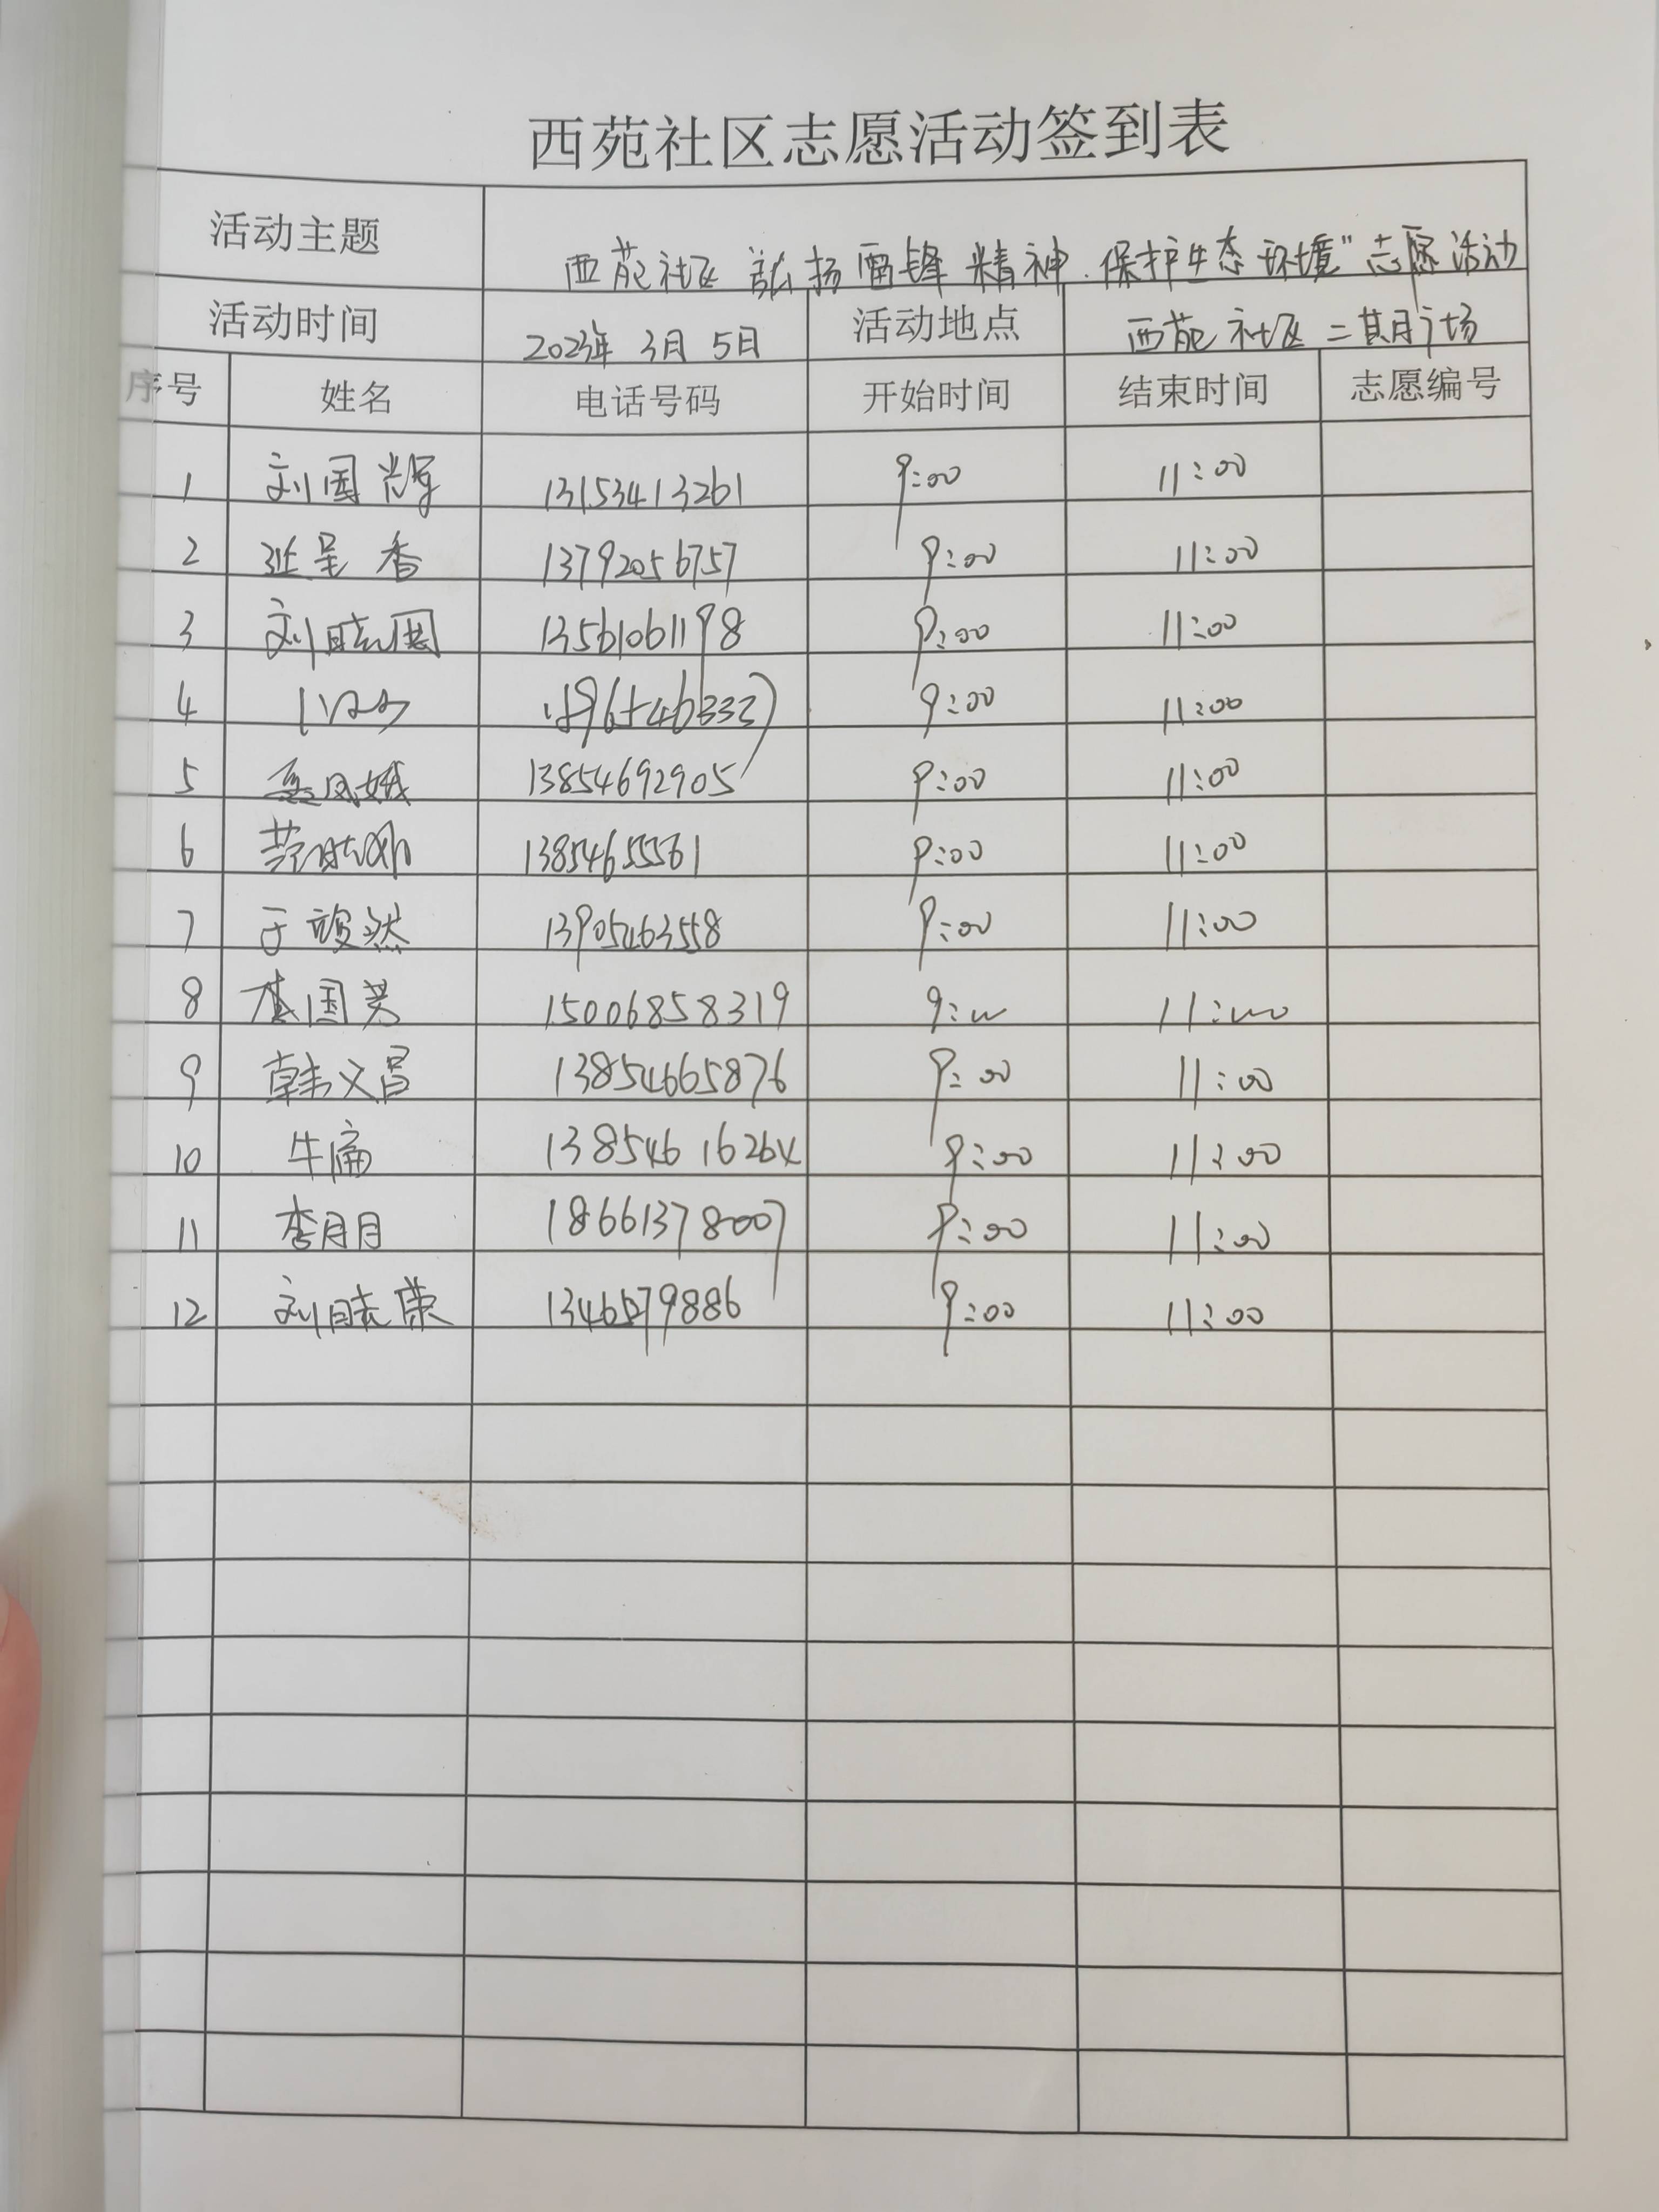 西苑社区志愿活动签到表
活动主题 西苑社区 弘扬雷锋精神.保护生态环境"志愿活动
活动时间 2023年 3月 5日 活动地点 西苑社区二期广场
序号 姓名 电话号码 开始时间 结束时间 志愿编号
1 刘国辉 13153413261 9:00 11:00
2 香 13792056757 9:00 11:00
3 刘晓国 13561061198 9:00 11:00
4 9:00 11:00
5 凤娥 13854692905 9:00 11:00
6 9:00 11:00
7 于竣然 13905463558 9:00 11:00
8 国 15006858319 9:00 11:00
9 韩义昌 13854665876 9:00 11:00
10 牛 13854616264 9:00 11:00
11 李月月 18661378007 9:00 11:00
12 刘晓康 9:00 11:00